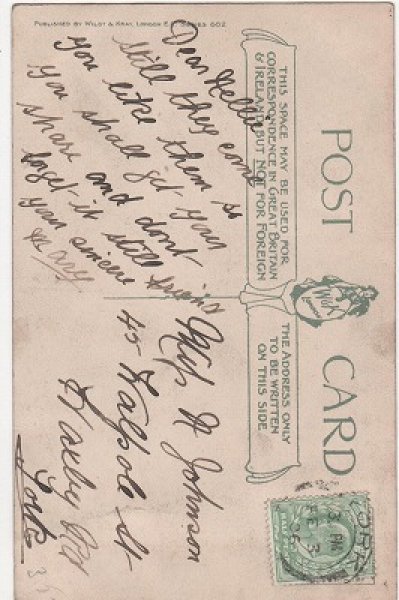 PUBLISHED BY WILDT & KRAY, LONDON E.C. SERIES 602.
POST CARD
THIS SPACE MAY BE USED FOR
CORRESPONDENCE IN GREAT BRITAIN
& IRELAND, BUT NOT FOR FOREIGN
THE ADDRESS ONLY
TO BE WRITTEN
ON THIS SIDE
Dear Nellie
still they come
you like them so
you shall get your
share and dont
forget it still
your sincere friend
Mary
Miss N Johnson
45 Walpole St
Haxby Rd
York
YORK
3 PM
FE 3
06